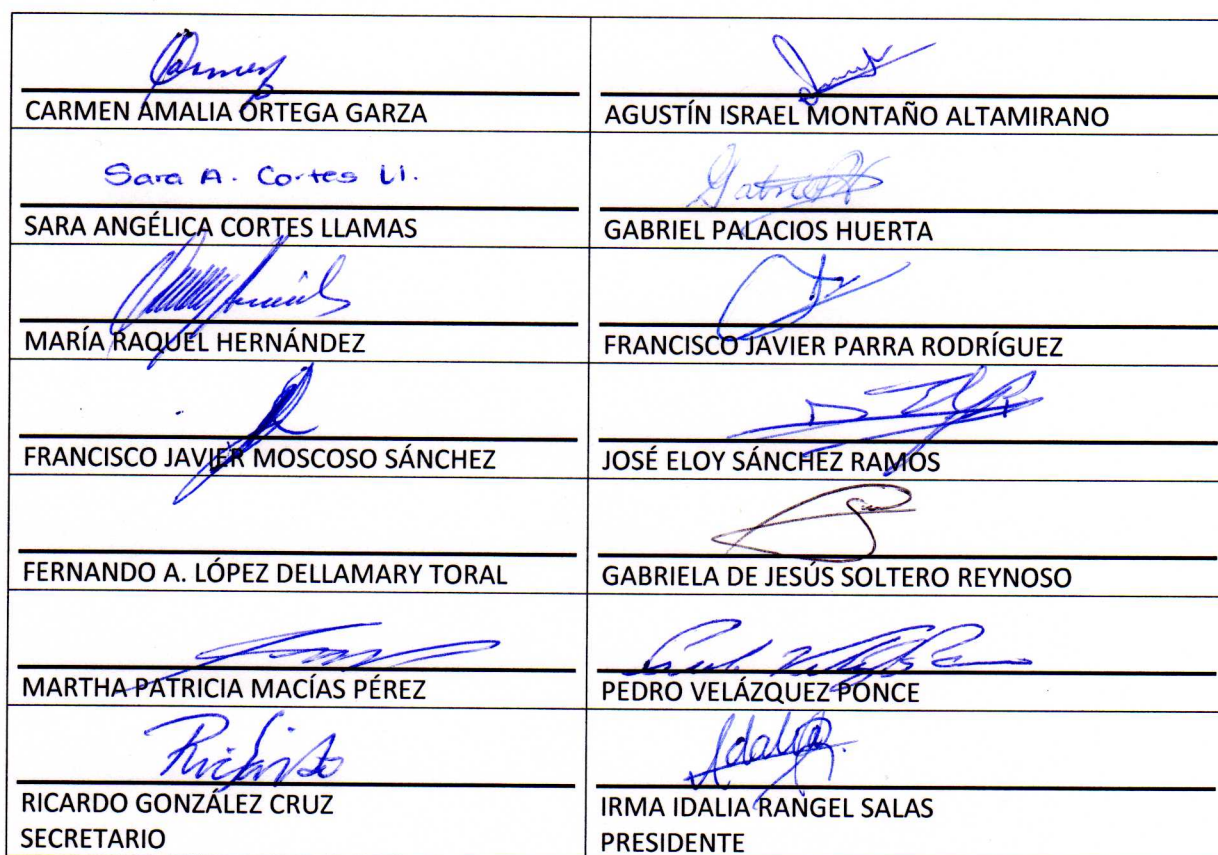 Carmen
CARMEN AMALIA ORTEGA GARZA
AGUSTÍN ISRAEL MONTAÑO ALTAMIRANO
Sara A. Cortes Ll.
SARA ANGÉLICA CORTES LLAMAS
Gabriel
GABRIEL PALACIOS HUERTA
MARÍA RAQUEL HERNÁNDEZ
FRANCISCO JAVIER PARRA RODRÍGUEZ
FRANCISCO JAVIER MOSCOSO SÁNCHEZ
JOSÉ ELOY SÁNCHEZ RAMOS
FERNANDO A. LÓPEZ DELLAMARY TORAL
GABRIELA DE JESÚS SOLTERO REYNOSO
MARTHA PATRICIA MACÍAS PÉREZ
PEDRO VELÁZQUEZ PONCE
Ricardo
RICARDO GONZÁLEZ CRUZ
SECRETARIO
Idalia
IRMA IDALIA RANGEL SALAS
PRESIDENTE